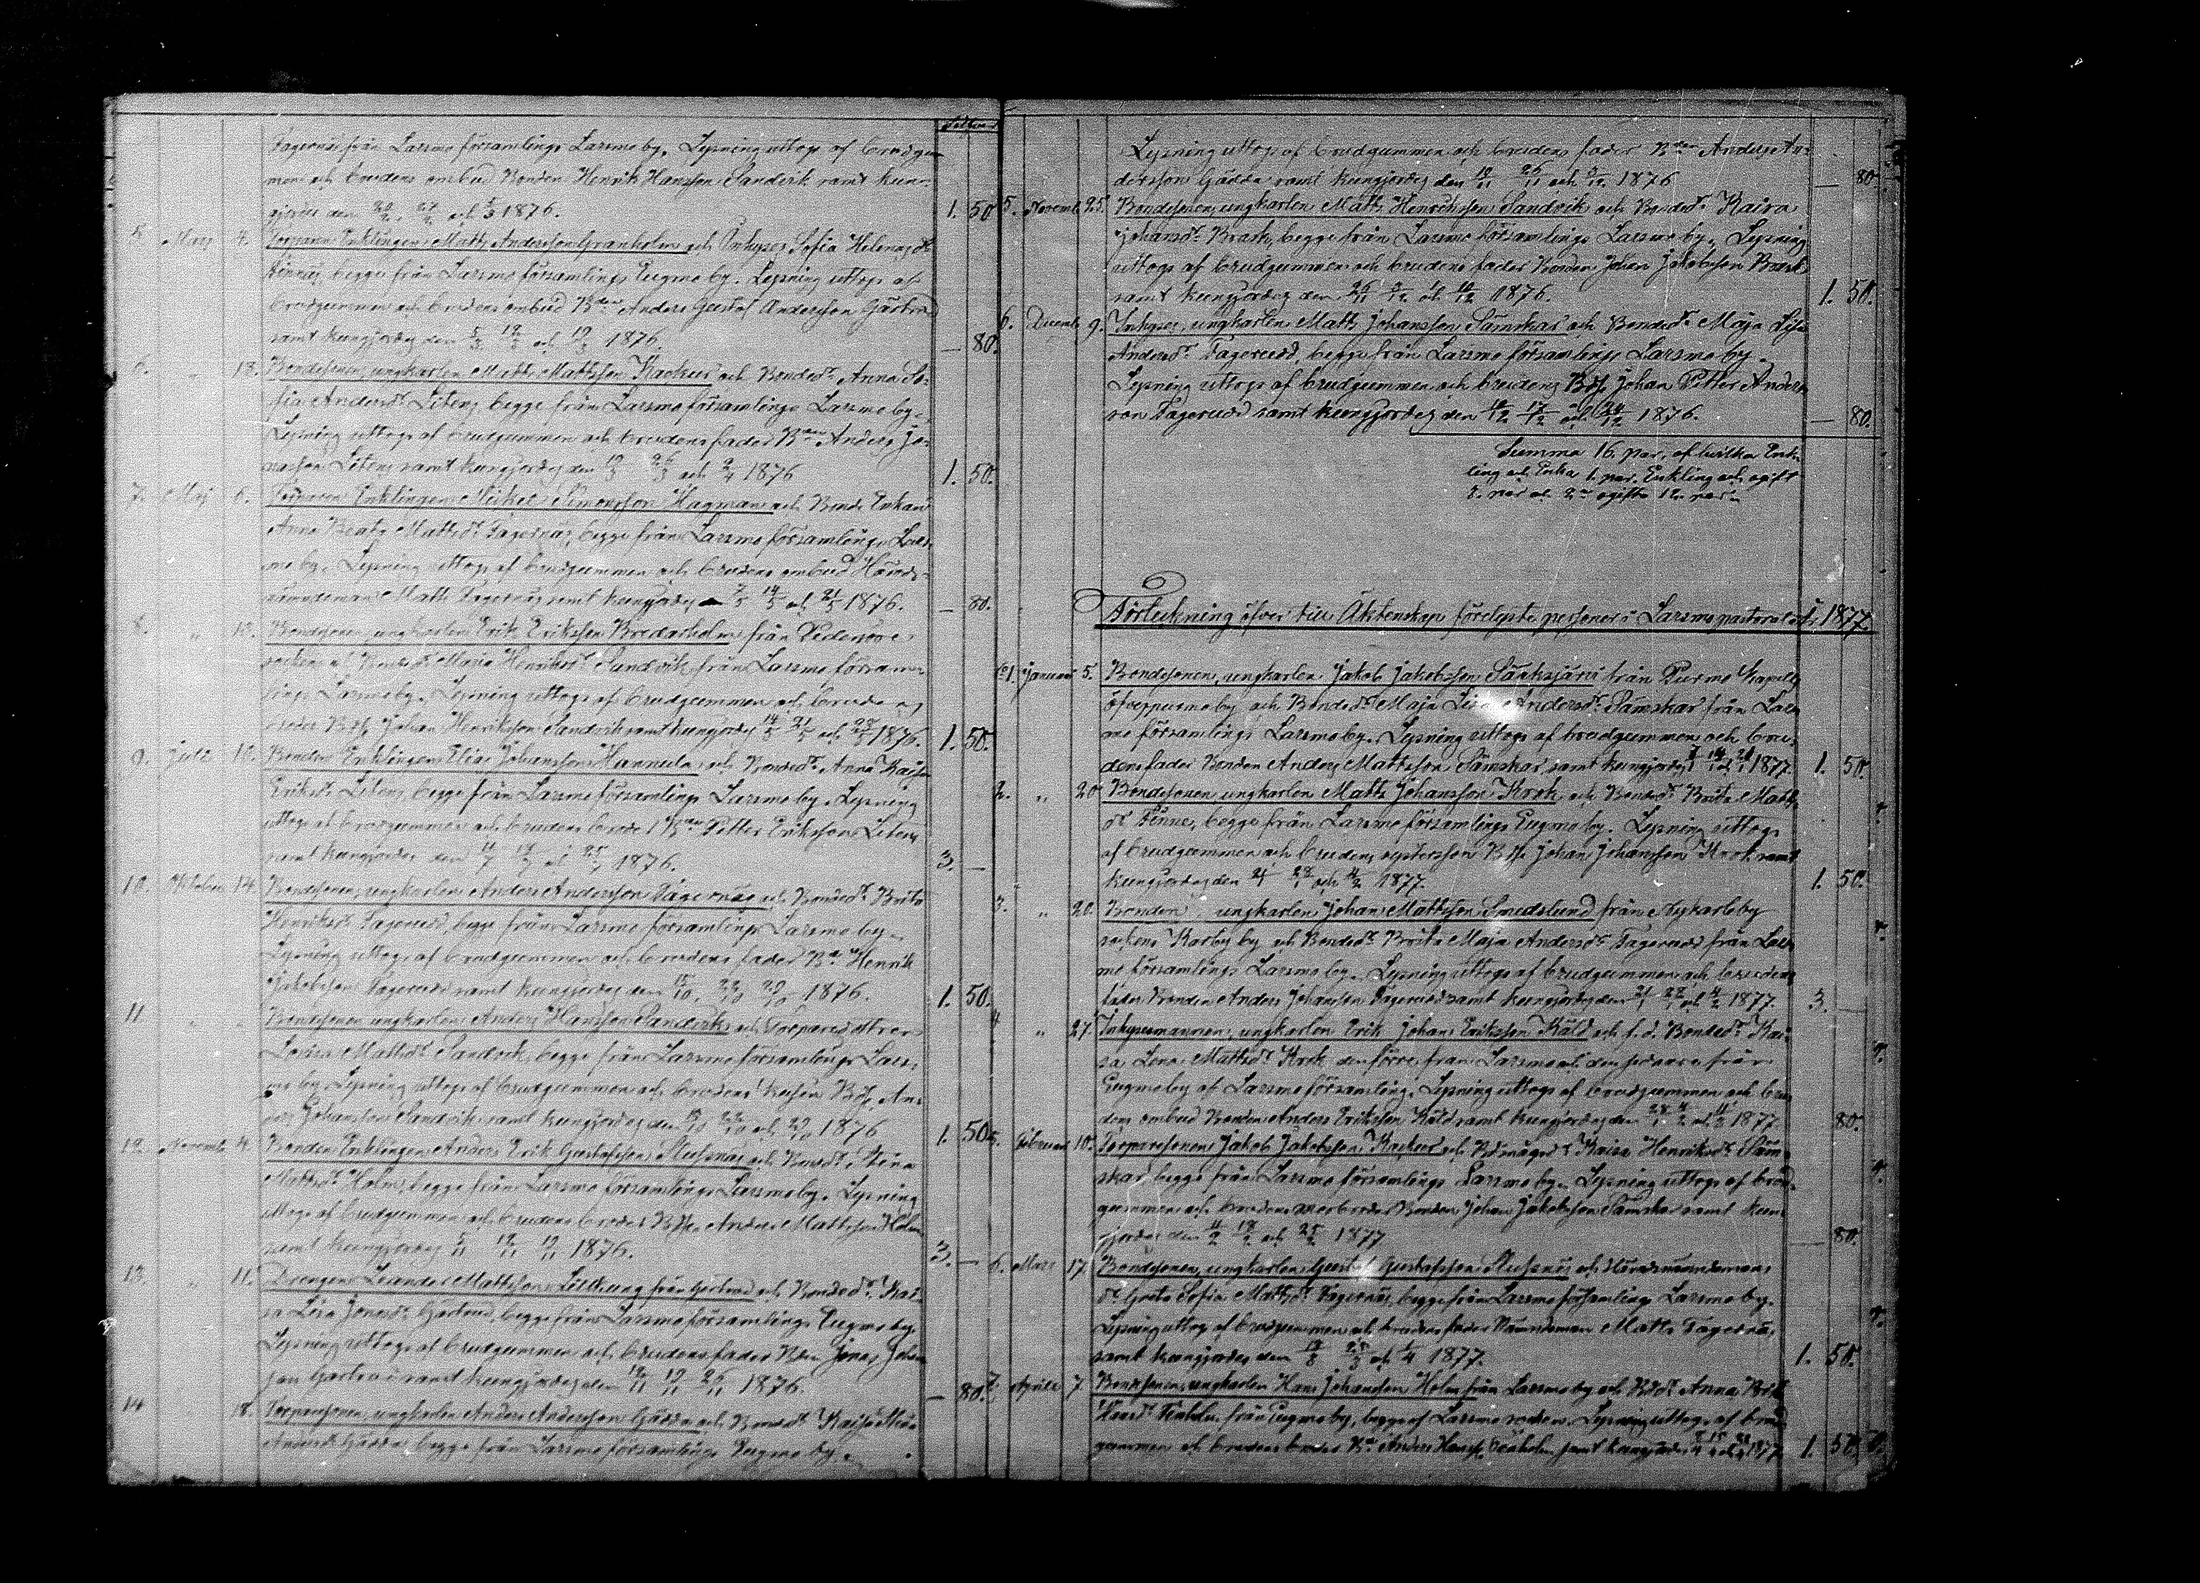 Fagernäs från Larsmo församlings Larsmo by. Lysning uttogs af brudgum-
men och brudens ombud Bonden Henrik Hansson Sandvik samt kun-
gjordes den 20/2, 27/2 och 5/3 1876. 1. 50.
5. Mars 4. Enklingen Matts Andersson Granholm och Inhyses Sofia Helena
begge från Larsmo församlings Eugmo by. Lysning uttogs af
brudgummen och brudens ombud Bden Anders Gustaf Andersson
samt kungjordes den 5/3 12/3 och 19/3 1876. — 80.
6. " 18. Bondesonen, ungkarlen Matts Mattsson Kackur och Bondedr Anna So-
fia Andersdr Liten, begge från Larsmo församlings Larsmo by.
Lysning uttogs af brudgummen och brudens fader Bden Anders Jo-
hansson Liten, samt kungjordes den 19/3 26/3 och 2/4 1876 1. 50.
7. Maj 6. Enklingen Mickel Simonsson Hagman och Bonde Enkan
Anna Beata Mattsdr Fagernäs, begge från Larsmo församlings Lars-
mo by. Lysning uttogs af brudgummen och brudens ombud Härads-
nämndeman Matts Fagernäs samt kungjordes 7/5 14/5 och 21/5 1876. — 80.
8. " 13. Bondesonen, ungkarlen Erik Eriksson Bredarholm från Pedersöre
socken och Bondedr Maria Henriksdr Sandvik från Larsmo församl-
lings Larsmo by. Lysning uttogs af brudgummen och brudens
broder Bds. Johan Henriksson Sandvik samt kungjordes 14/5 21/5 och 28/5 1876. 1. 50.
9. Juli 10. Bonden Enklingen Elias Johansson Hannula och Bondedr Anna Kaisa
Eriksdr Liten, begge från Larsmo församlings Larsmo by. Lysning
uttogs af brudgummen och brudens broder Bden Petter Eriksson Liten
samt kungjordes den 1876. 3. —
10. Oktober 14. Bondesonen, ungkarlen Anders Andersson Fagernäs och Bondedr Brita
Henriksdr Fagerudd, begge från Larsmo församlings Larsmo by.
Lysning uttogs af brudgummen och brudens fader Bn Henrik
Jakobsson Fagerudd samt kungjordes den 15/10, 22/10 29/10 1876. 1. 50.
11 " " Bondesonen ungkarlen Anders Hansson Sandvik och Torparedottren
Lovisa Mattsdr Sandvik, begge från Larsmo församlings Lars-
mo by. Lysning uttogs af brudgummen och brudens kusin Bds. An-
ders Johansson Sandvik samt kungjordes den 15/10 22/10 och 29/10 1876 1. 50.
12. Novemb. 4. Bonden Enklingen Anders Erik Gustafsson Slussnäs och Bondedr Stina
Mattsdr Holm, begge från Larsmo församlings Larsmo by. Lysning
uttogs af brudgummen och brudens broder Bds. Anders Mattsson Holm
samt kungjordes 5/11 12/11 19/11 1876. 3. —
13. " 11. Drengen Leander Mattsson Lillkung från Gertrud och Bondedr Kai-
sa Lisa Jonasdr Gertrud, begge från Larsmo församlings Eugmo by.
Lysning uttogs af brudgummen och brudens fader Bden Jonas Johans-
son Gertrud samt kungjordes den 12/11 19/11 26/11 1876. — 80.
14 18. Torparesonen, ungkarlen Anders Andersson Gädda och Bondedr Kaisa Stina
Andersdr Gädda, begge från Larsmo församlings Eugmo by.
Lysning uttogs af brudgummen och brudens fader Bden Anders An-
dersson Gädda samt kungjordes den 19/11 26/11 och 3/12 1876 — 80
5. Novemb. 25. Bondesonen, ungkarlen Matts Henriksson Sandvik och Bondedr Kaisa
Johansdr Brask, begge från Larsmo församlings Larsmo by. Lysning
uttogs af brudgummen och brudens fader Bonden Johan Jakobsson Brask
samt kungjordes den 26/11 3/12 och 10/12 1876. 1. 50.
6. Decemb. 9. Inhyses, ungkarlen Matts Johansson Sämskar och Bondedr Maja Lisa
Andersdr Fagerudd, begge från Larsmo församlings Larsmo by.
Lysning uttogs af brudgummen och brudens Bds. Johan Petter Anders-
son Fagerudd samt kungjordes den 10/12 17/12 och 24/12 1876. — 80.
Summa 16. par, af hvilka Enk-
ling och Enka 1. par. Enkling och ogift
3. par och 2ne ogifta 12. par.
Förteckning öfver till Äktenskap förelyste personer i Larsmo pastorat år 1877
No 1. Januari 5. Bondesonen, ungkarlen Jakob Jakobsson Sänksjärvi från Purmo Kapells
öfverpurmo by och Bondedr Maja Lisa Andersdr Sämskar från Lars-
mo församlings Larsmo by. Lysning uttogs af brudgummen och bru-
dens fader Bonden Anders Mattsson Sämskar, samt kungjordes 7/1 14/1 och 21/1 1877. 1. 50.
2. " 20. Bondesonen, ungkarlen Matts Johansson Krok, och Bondedr Brita Matts
dr Finne, begge från Larsmo församlings Eugmo by. Lysning uttogs
af brudgummen och brudens systerson Bds. Johan Johansson Krok samt
kungjordes den 21/1 28/1 och 4/2 1877. 1. 50.
3. " 20. Bonden ungkarlen Johan Mattsson Smedslund från Nykarleby
sockens Karby by och Bondedr Brita Maja Andersdr Fagerudd från Lars-
mo församlings Larsmo by. Lysning uttogs af brudgummen och brudens
fader Bonden Anders Johansson Fagerudd samt kungjordes den 21/1 28/1 och 4/2 1877. 3. —
4 " 27. Inhysesmannen, ungkarlen Erik Johan Eriksson Käld och f.d. Bondedr Kai-
sa Lena Mattsdr Krok den förre från Larsmo och den sednare från
Eugmo by af Larsmo församling. Lysning uttogs af brudgummen och bru-
dens ombud Bonden Anders Eriksson Käld samt kungjordes den 28/1 4/2 och 11/2 1877 80.
5. Februari 10. Torparesonen Jakob Jakobsson Kackur och Kaisa Henriksdr Säm-
skar begge från Larsmo församlings Larsmo by. Lysning uttogs af brud-
gummen och brudens morbroder Bonden Johan Jakobsson Sämskar samt kun-
gjordes den 11/2 18/2 och 25/2 1877 — 80.
6. Mars 17. Bondesonen, ungkarlen Gustaf Gustafsson Slussnäs och Häradsnämndemans
dr Greta Sofia Mattsdr Fagernäs, begge från Larsmo församlings Larsmo by.
Lysning uttogs af brudgummen och brudens fader Nämndeman Matts Fagernäs
samt kungjordes den 18/3 25/3 och 1/4 1877. 1. 50.
7. April 7 Bondesonen, ungkarlen Hans Johansson Holm från Larsmo by och Bdr Anna Brita
Hansdr från Eugmo by, begge af Larsmo socken. Lysning uttogs af brud-
gummen och brudens broder Bn Anders Hanss. samt kungjordes 8/4 15/4 och 22/4 1877 1. 50.